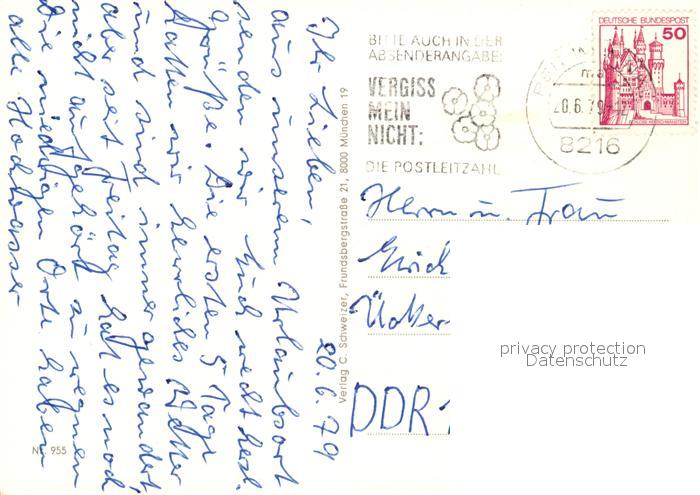 Ihr Lieben, 20.6.79
aus unserem Urlaubsort
senden wir Euch recht herzl.
Grüße. Die ersten 5 Tage
hatten wir herrliches Wetter
und sind immer gewandert,
aber seit Freitag hat es noch
nicht aufgehört zu regnen
die niedrigen Orte haben
alle Hochwasser
Nr. 955
Verlag C. Schweizer, Frundsbergstraße 21, 8000 München 19
BITTE AUCH IN DER
ABSENDERANGABE:
VERGISS
MEIN
NICHT:
DIE POSTLEITZAHL
20.6.79
8216
DEUTSCHE BUNDESPOST
50
SCHLOSS NEUSCHWANSTEIN
Herrn u. Frau
DDR-
privacy protection
Datenschutz